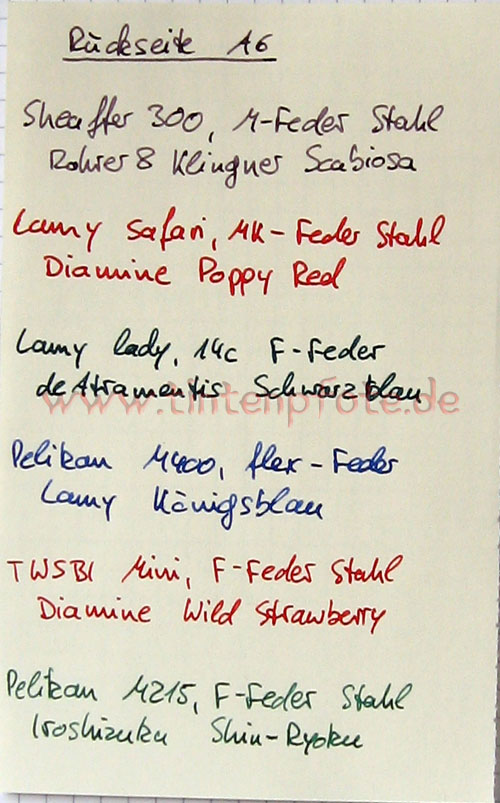 Rückseite A6
Sheaffer 300, M-Feder Stahl
Rohrer & Klingner Scabiosa
Lamy Safari, MK-Feder Stahl
Diamine Poppy Red
Lamy lady, 14c F-Feder
de Atramentis Schwarzblau
www.tintenpfote.de
Pelikan M400, flex-Feder
Lamy Königsblau
TWSBI Mini, F-Feder Stahl
Diamine Wild Strawberry
Pelikan M215, F-Feder Stahl
Iroshizuku Shin-Ryoku